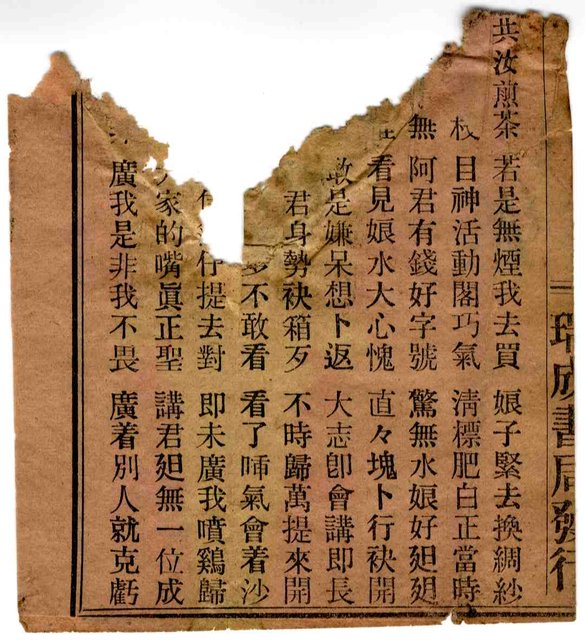 瑞成書局發行
共汝煎茶 若是無煙我去買 娘子緊去換綢紗
目神活動閣巧氣 清標肥白正當時
無 阿君有錢好字號 驚無水娘好
看見娘水大心愧 直々塊卜行袂開
敢是嫌呆想卜返 大志卽會講即長
君身勢袂箱歹 不時歸萬提來開
不敢看 看了氣會着沙
仔提去對 即未廣我噴鷄歸
家的嘴眞正聖 講君無一位成
廣我是非我不畏 廣着別人就克虧